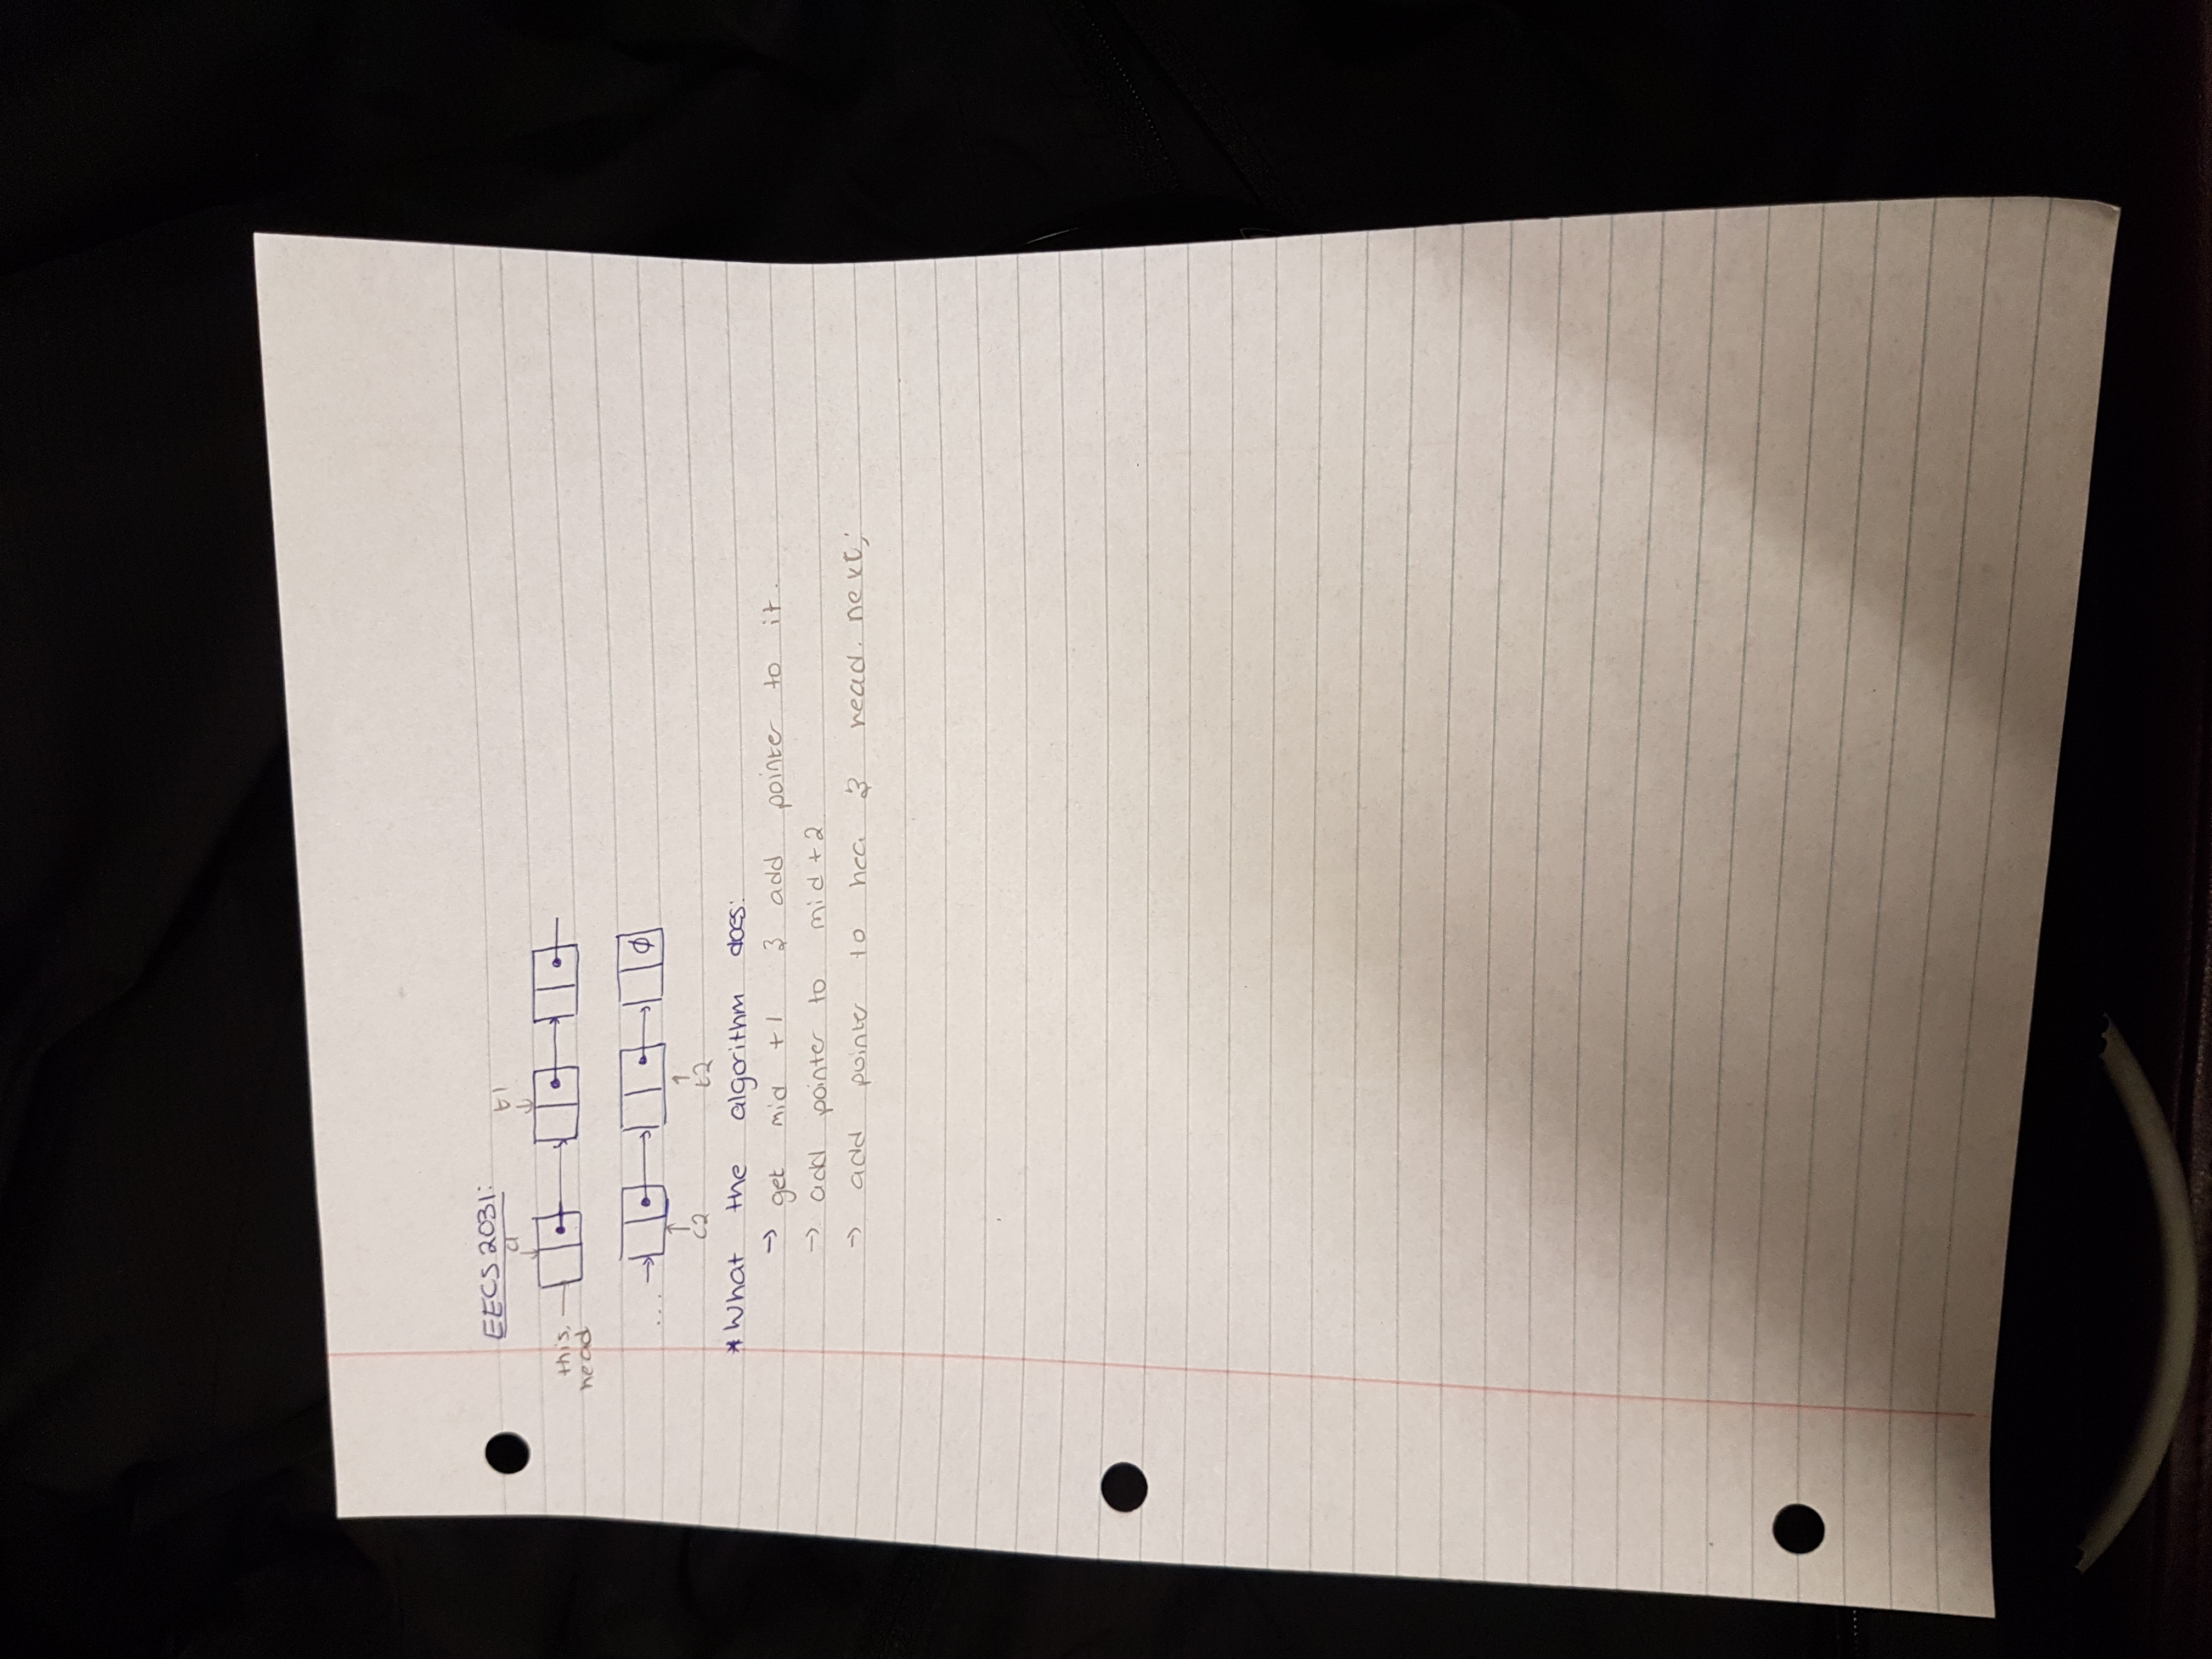 EECS 2031:
t1
this.
head
ø
...
c2 t2
* What the algorithm does:
→ get mid +1 & add pointer to it.
→ add pointer to mid+2
→ add pointer to hea & head.next;